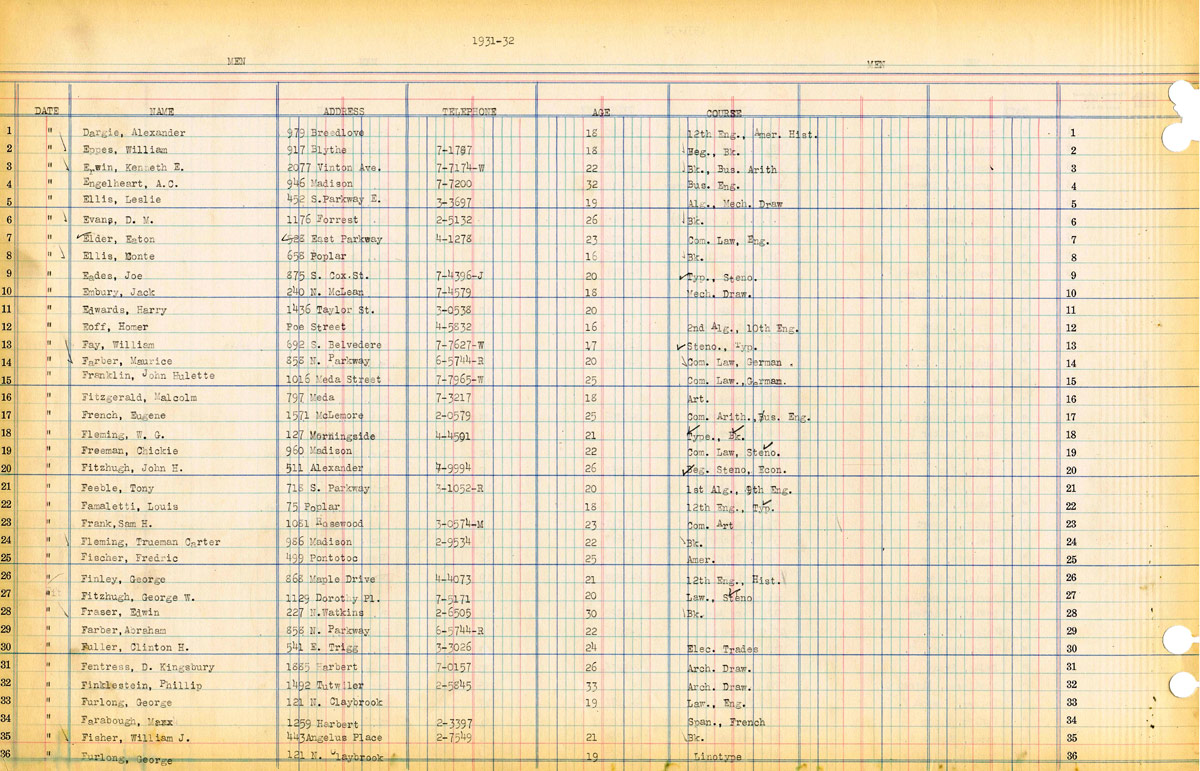 1931-32
MEN MEN
DATE NAME ADDRESS TELEPHONE AGE COURSE
1 " Dargie, Alexander 979 Breedlove 18 12th Eng., Amer. Hist. 1
2 " Eppes, William 917 Blythe 7-1787 18 Beg., Bk. 2
3 " Erwin, Kenneth E. 2077 Vinton Ave. 7-7174-W 22 Bk., Bus. Arith 3
4 " Engelheart, A.C. 946 Madison 7-7200 32 Bus. Eng. 4
5 " Ellis, Leslie 452 S.Parkway E. 3-3697 19 Alg., Mech. Draw 5
6 " Evans, D. M. 1176 Forrest 2-5132 26 Bk. 6
7 " Elder, Eaton 528 East Parkway 4-1278 23 Com. Law, Eng. 7
8 " Ellis, Monte 658 Poplar 16 Bk. 8
9 " Eades, Joe 875 S. Cox.St. 7-4396-J 20 Typ., Steno. 9
10 " Embury, Jack 240 N. McLean 7-4579 18 Mech. Draw. 10
11 " Edwards, Harry 1436 Taylor St. 3-0538 20 11
12 " Eoff, Homer Poe Street 4-5832 16 2nd Alg., 10th Eng. 12
13 " Fay, William 692 S. Belvedere 7-7627-W 17 Steno., Typ. 13
14 " Farber, Maurice 858 N. Parkway 6-5744-R 20 Com. Law, German . 14
15 " Franklin, John Hulette 1016 Meda Street 7-7965-W 25 Com. Law.,German. 15
16 " Fitzgerald, Malcolm 797 Meda 7-3217 18 Art. 16
17 " French, Eugene 1571 McLemore 2-0579 25 Com. Arith.,Bus. Eng. 17
18 " Fleming, W. G. 127 Morningside 4-4591 21 Type., Bk. 18
19 " Freeman, Chickie 960 Madison 22 Com. Law, Steno. 19
20 " Fitzhugh, John H. 511 Alexander 7-9994 26 Beg. Steno, Econ. 20
21 " Feeble, Tony 718 S. Parkway 3-1052-R 20 1st Alg., 9th Eng. 21
22 " Famaletti, Louis 75 Poplar 18 12th Eng., Typ. 22
23 " Frank,Sam H. 1081 Rosewood 3-0574-M 23 Com. Art 23
24 " Fleming, Trueman Carter 986 Madison 2-9534 22 Bk. 24
25 " Fischer, Fredric 499 Pontotoc 25 Amer. 25
26 " Finley, George 868 Maple Drive 4-4073 21 12th Eng., Hist. 26
27 " Fitzhugh, George W. 1129 Dorothy Pl. 7-5171 20 Law., Steno 27
28 " Fraser, Edwin 227 N.Watkins 2-6505 30 Bk. 28
29 " Farber,Abraham 858 N. Parkway 6-5744-R 22 29
30 " Fuller, Clinton H. 541 E. Trigg 3-3026 24 Elec. Trades 30
31 " Fentress, D. Kingsbury 1885 Harbert 7-0157 26 Arch. Draw. 31
32 " Finklestein, Phillip 1492 Tutwiler 2-5845 33 Arch. Draw. 32
33 " Furlong, George 121 N. Claybrook 19 Law., Eng. 33
34 " Farabough, Maxx 1259 Harbert 2-3397 Span., French 34
35 " Fisher, William J. 443Angelus Place 2-7549 21 Bk. 35
36 " Furlong, George 121 N. Claybrook 19 Linotype 36